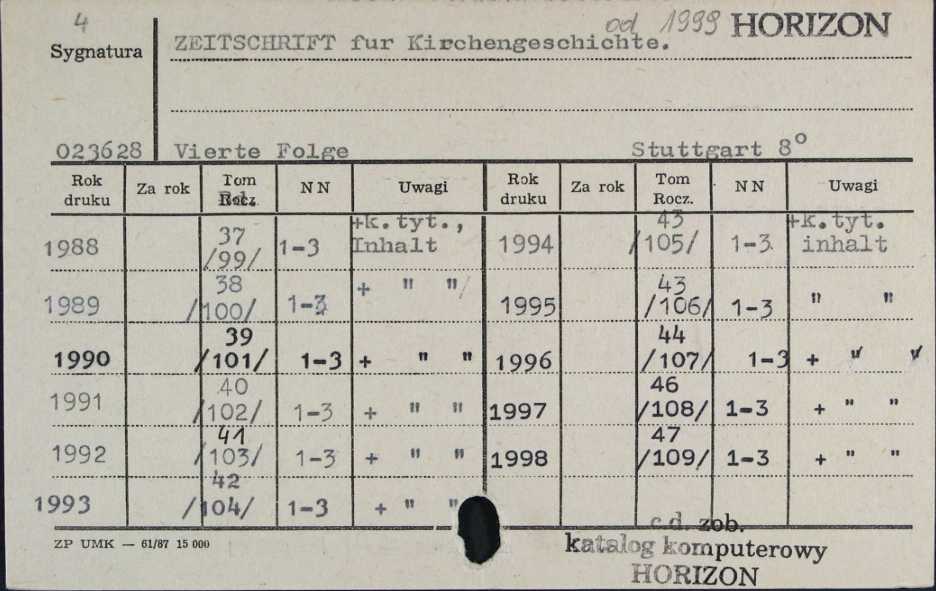 4 od 1999 HORIZON
Sygnatura ZEITSCHRIFT fur Kirchengeschichte.
023628 Vierte Folge Stuttgart 8°
Rok druku Za rok Tom Rocz. NN Uwagi Rok druku Za rok Tom Rocz. NN Uwagi
1988 37 /99/ 1-3 +k.tyt., Inhalt 1994 43 /105/ 1-3 +k.tyt. inhalt
1989 38 /100/ 1-3 + " "/ 1995 43 /106/ 1-3 " "
1990 39 /101/ 1-3 + " " 1996 44 /107/ 1-3 + " "
1991 40 /102/ 1-3 + " " 1997 46 /108/ 1-3 + " "
1992 41 /103/ 1-3 + " " 1998 47 /109/ 1-3 + " "
1993 42 /104/ 1-3 + " "
c.d. zob.
ZP UMK — 61/87 15 000 katalog komputerowy
HORIZON